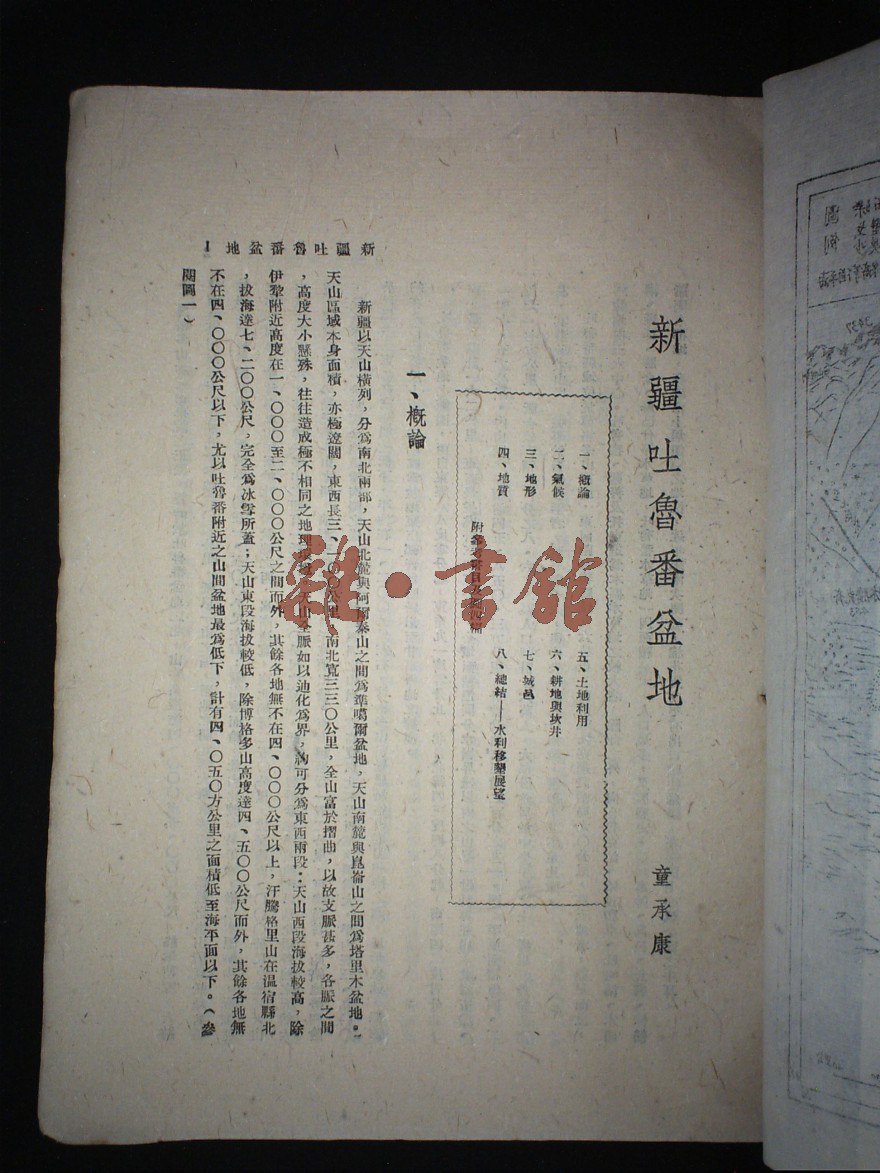 新疆吐魯番盆地
童承康
一、概論
二、氣候
三、地形
四、地質
五、土地利用
六、耕地與坎井
七、城邑
八、總結——水利移墾展望
一、概論
新疆以天山橫列，分爲南北兩部，天山北麓與阿爾泰山之間爲準噶爾盆地，天山南麓與崑崙山之間爲塔里木盆地。
天山區域本身面積，亦極遼闊，東西長三、一〇〇公里，南北寬三三〇公里，全山富於摺曲，以故支脈甚多，各脈之間
，高度大小懸殊，往往造成極不相同之地理，天山全脈如以迪化爲界，約可分爲東西兩段：天山西段海拔較高，除
伊犂附近高度在一、〇〇〇至二、〇〇〇公尺之間而外，其餘各地無不在四、〇〇〇公尺以上，汗騰格里山在溫宿縣北
，拔海達七、二〇〇公尺，完全爲冰雪所蓋；天山東段海拔較低，除博格多山高度達四、五〇〇公尺而外，其餘各地無
不在四、〇〇〇公尺以下，尤以吐魯番附近之山間盆地最爲低下，計有四、〇五〇方公里之面積低至海平面以下。（參
閱圖一）
新疆吐魯番盆地 1
雜·書館
圖例